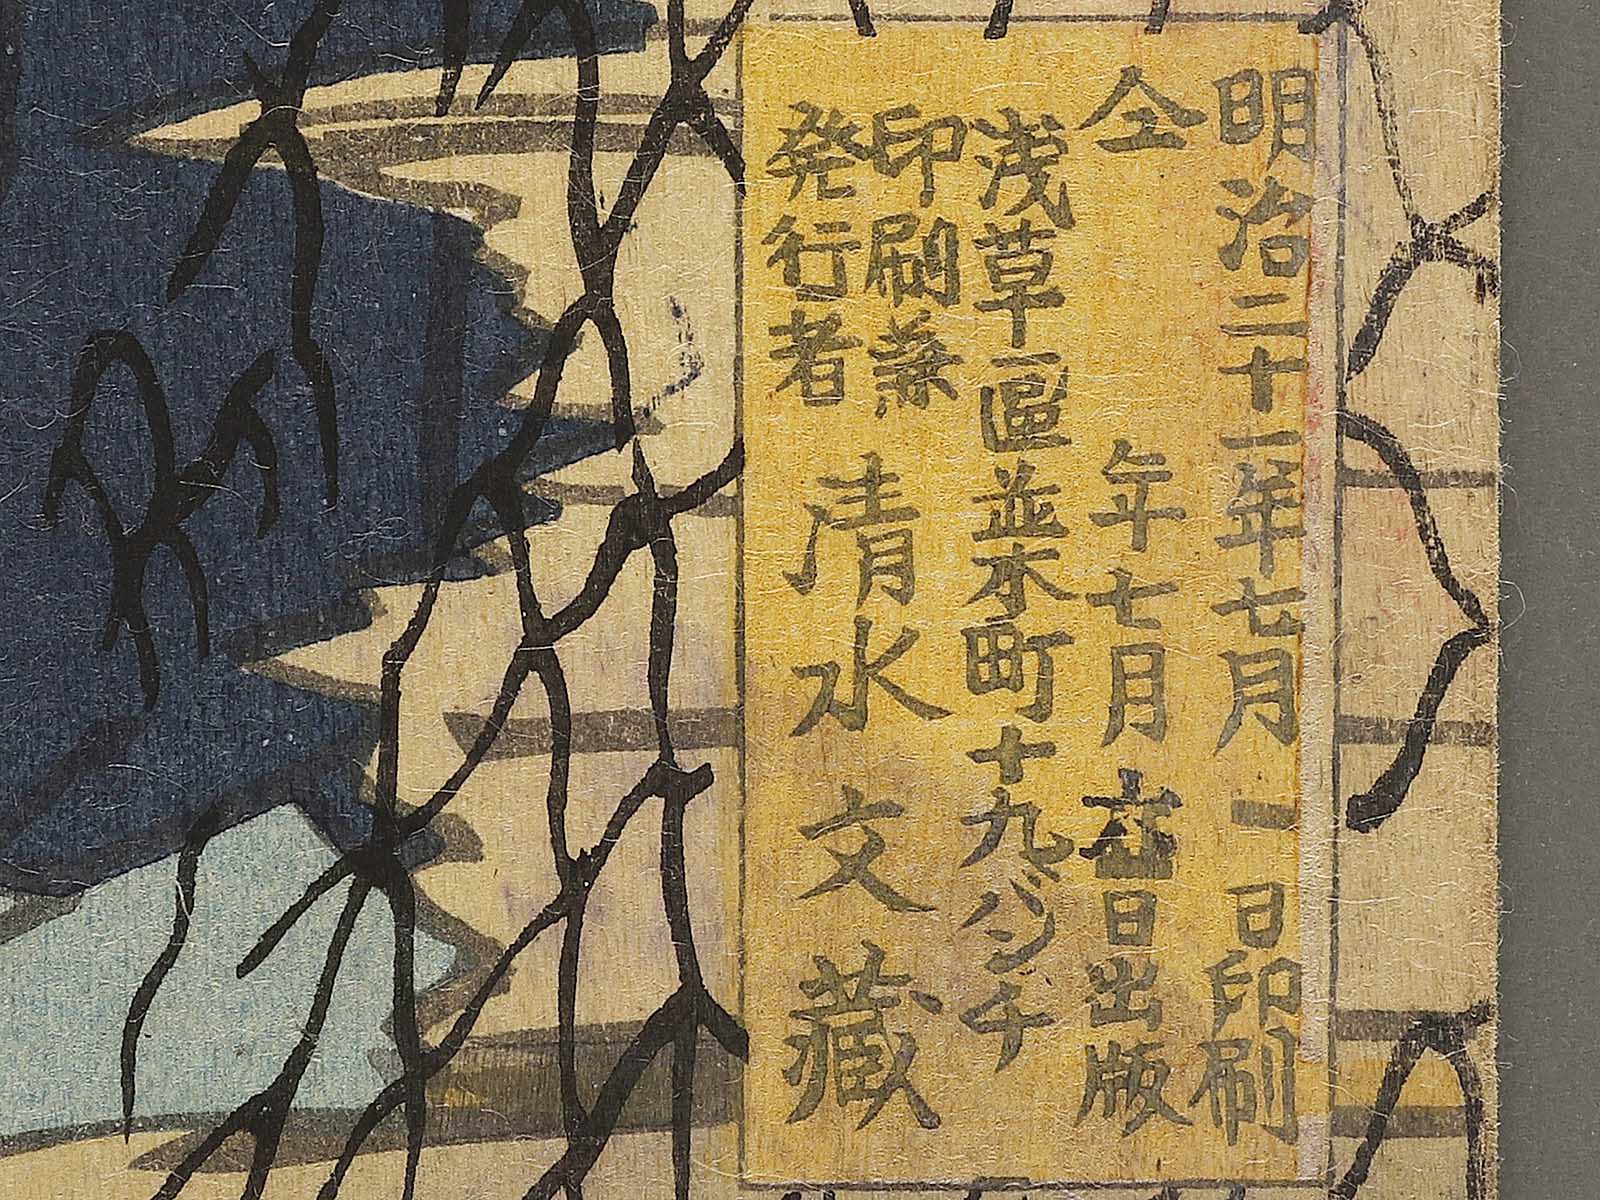 明治二十一年七月一日印刷
全 年七月 日出版
浅草區並木町十九バンチ
印刷兼
発行者 清水文藏